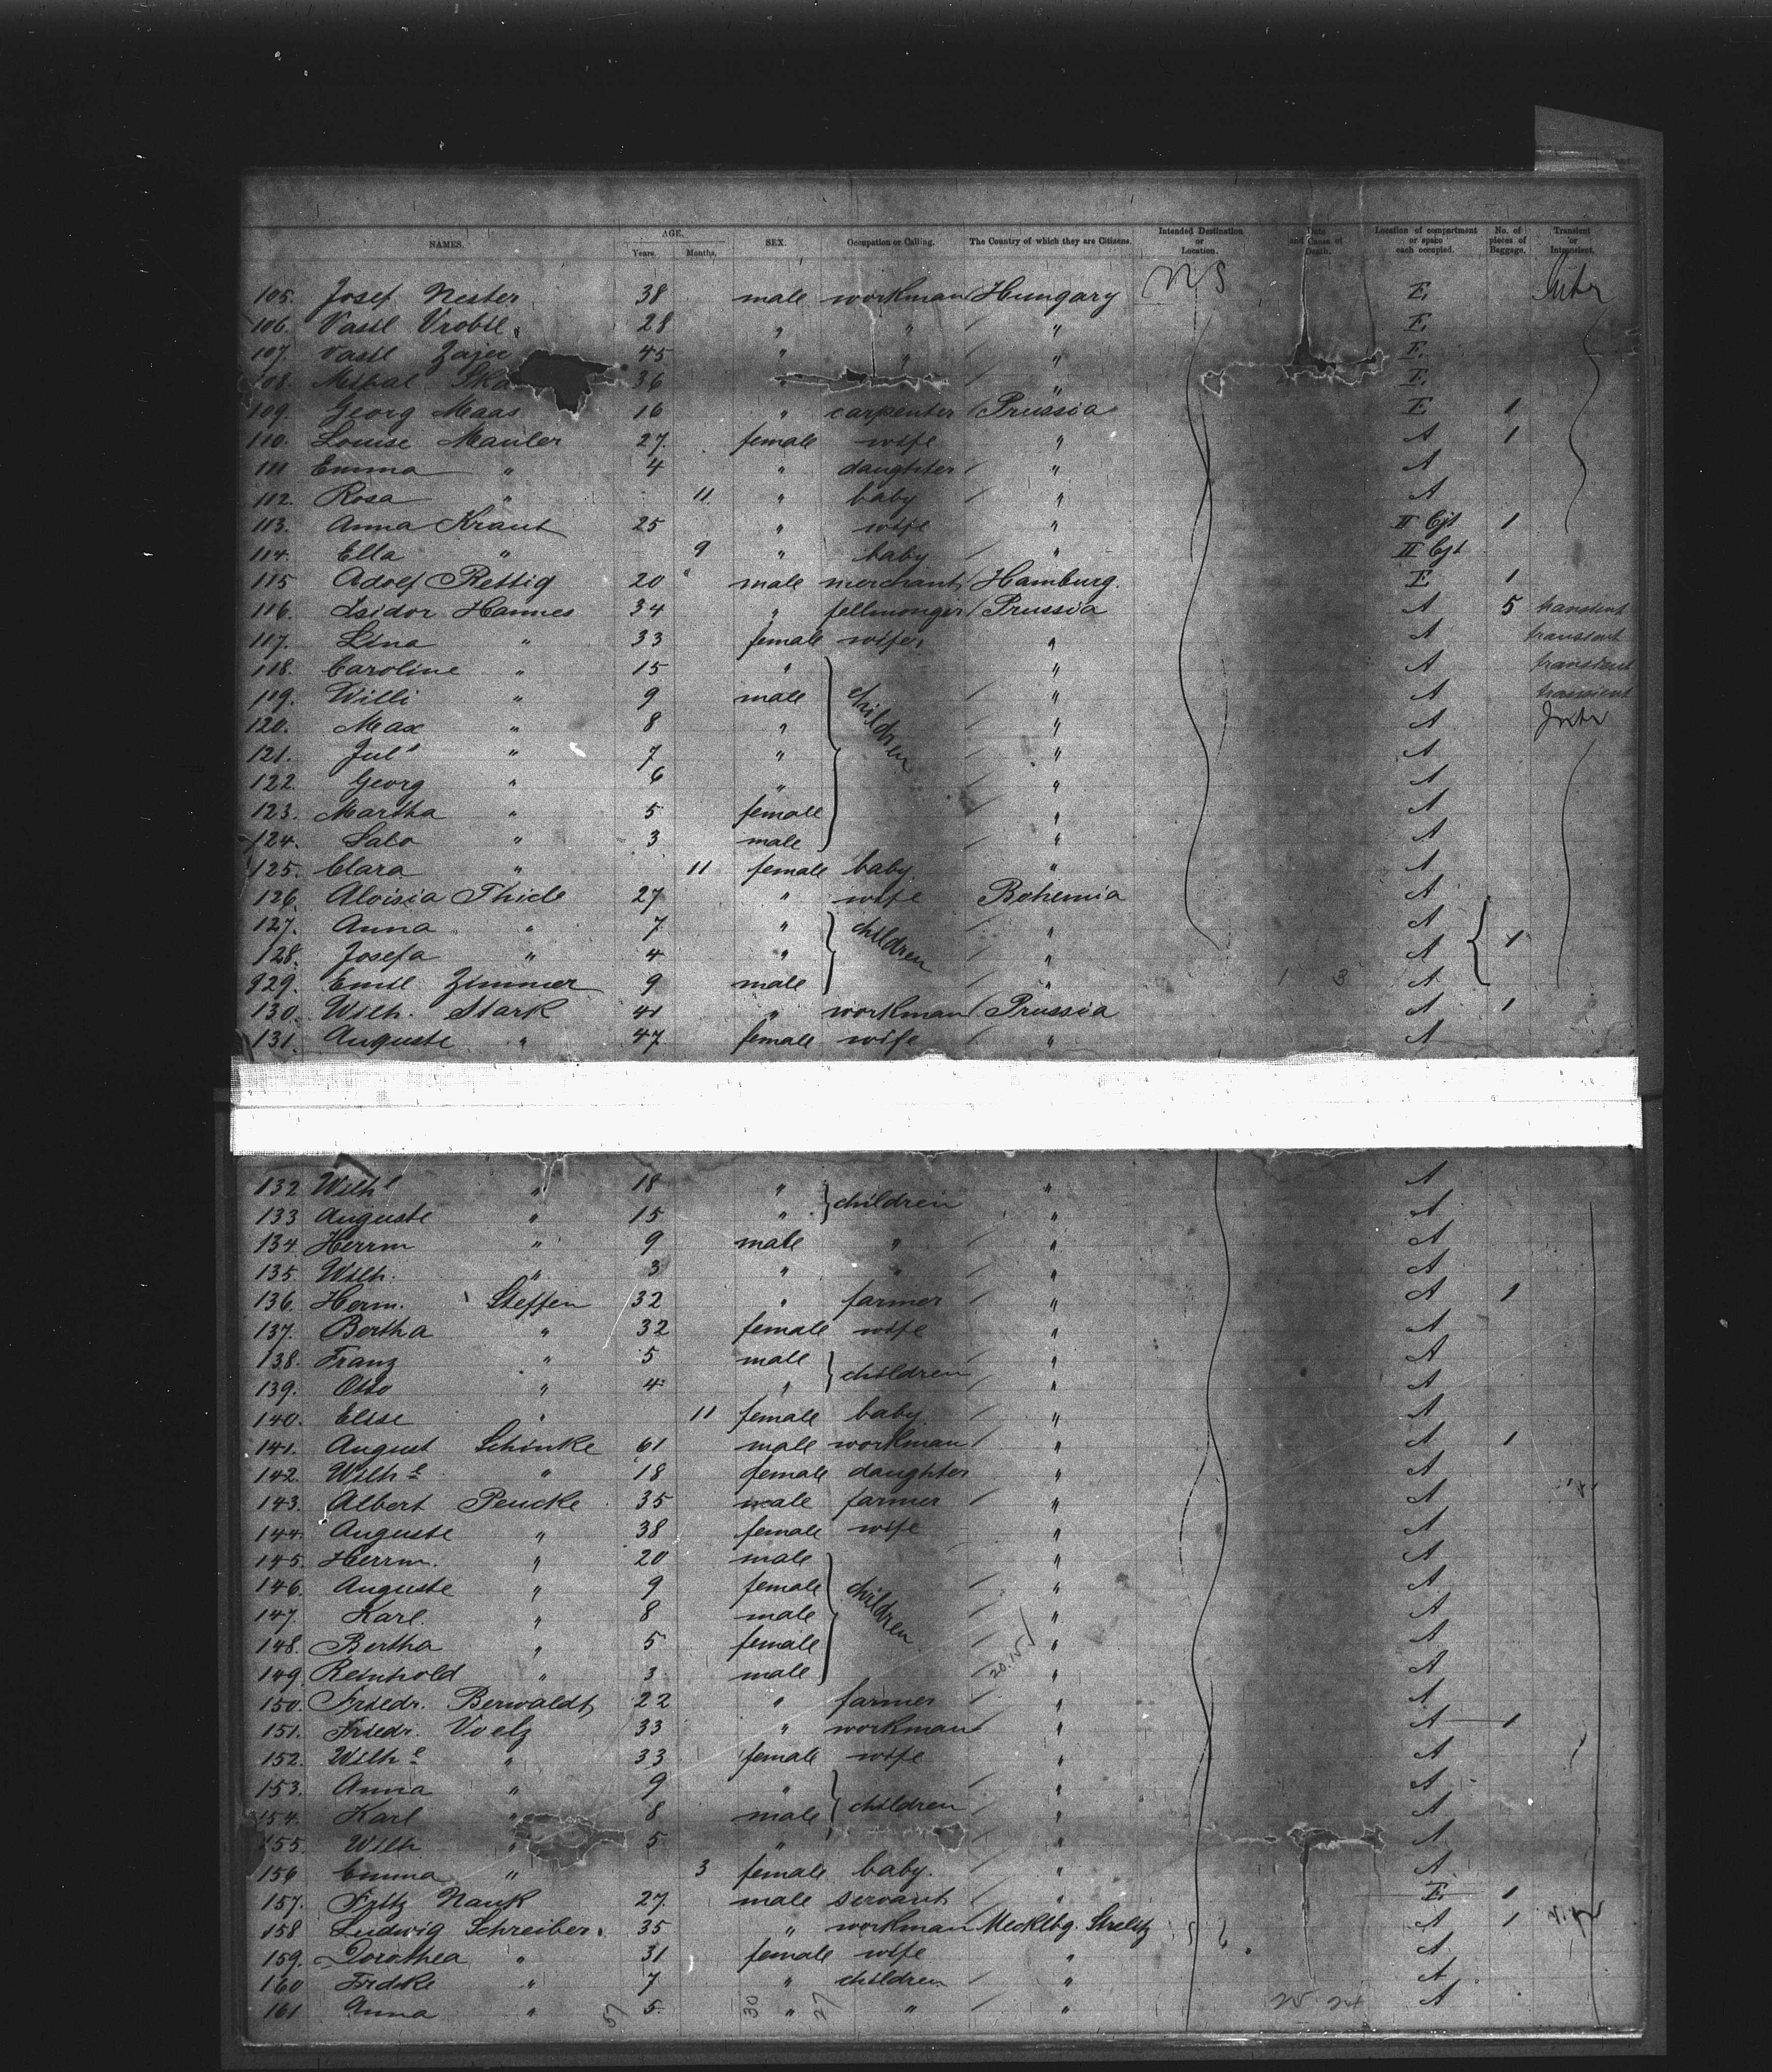 NAMES. AGE. Years. Months. SEX. Occupation or Calling. The Country of which they are Citizens. Intended Destination or Location. Date and Cause of Death. Location of compartment or space each occupied. No. of pieces of Baggage. Transient or Intransient.
105. Josef Nester 38 male workman Hungary E
106. Vasil Vrobil 28 " " " E
107. Vasil Zajec 45 " " " E
108. 36 " " E
109. Georg Maas 16 " carpenter Prussia E 1
110. Louise Mauler 27 female wife " A 1
111 Emma " 4 " daughter " A
112. Rosa " 11 " baby " A
113. Anna Kraut 25 " wife " II Cjt 1
114. Ella " 9 " baby " II Cjt
115 Adolf Rettig 20 male merchant Hamburg. E 1
116. Isidor Hannes 34 " fellmonger Prussia A 5 transient
117. Lina " 33 female wife " A transient
118. Caroline " 15 " children " A transient
119. Willi " 9 male " A transient
120. Max " 8 " " A
121. Jul' " 7 " " A
122. Georg " 6 " " A
123. Martha " 5 female " A
124. Salo " 3 male " A
125. Clara " 11 female baby " A
126 Aloisia Thiele 27 " wife Bohemia A
127. Anna " 7 " children " A 1
128. Josefa " 4 " " A
129. Emil Zimmer 9 male " A
130. Wilh. Stark 41 " workman Prussia A 1
131. Auguste " 47 female wife " A
132 Wilh e " 18 " children " A
133 Auguste " 15 " " A
134 Herrm " 9 male " " A
135. Wilh. " 3 " " " A
136. Herm. Steffen 32 " farmer " A 1
137. Bertha " 32 female wife " A
138. Franz " 5 male children " A
139. Otto " 4 " " A
140. Elise " 11 female baby " A
141. August Schinke 61 male workman " A 1
142. Wilh e " 18 female daughter " A
143. Albert Peucke 35 male farmer " A
144. Auguste " 38 female wife " A
145. Herrm. " 20 male children " A
146. Auguste " 9 female " A
147. Karl. " 8 male " A
148. Bertha " 5 female " A
149 Reinhold " 3 male " A
150. Friedr. Berwaldt 22 " farmer " A
151. Friedr. Voelz 33 " workman " A 1
152. Wilh e " 33 female wife " A
153. Anna " 9 " children " A
154. Karl " 8 male " A
155. Wilh " 5 " " A
156 Emma " 3 female baby. " A
157. Fritz Nauk 27 male servant " E 1
158 Ludwig Schreiber 35 " workman Mecklbg. Strelitz A 1
159. Dorothea " 31 female wife " A
160 Fridke " 7 " children " A
161 Anna " 5 " " " A